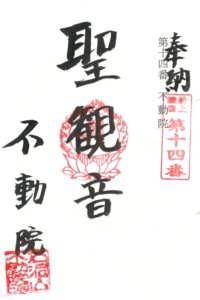 奉納
第十四番 不動院
第十四番
聖観音
不動院